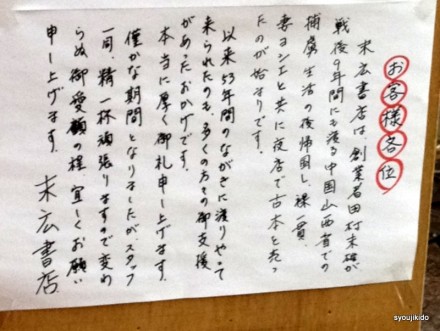 お客様各位
末広書店は、創業者田村末雄が
戦後9年間にも渡る中国山西省での
捕虜生活の後帰国し、裸一貫、
妻ヨシエと共に夜店で古本を売っ
たのが始まりです。
以来53年間のながきに渡りやって
来られたのも多くの方々の御支援
があったおかげです。
本当に厚く御礼申し上げます。
僅かな期間となりましたがスタッフ
一同、精一杯頑張りますので変わ
らぬ御愛顧の程宜しくお願い
申し上げます。 末広書店
syoujikido